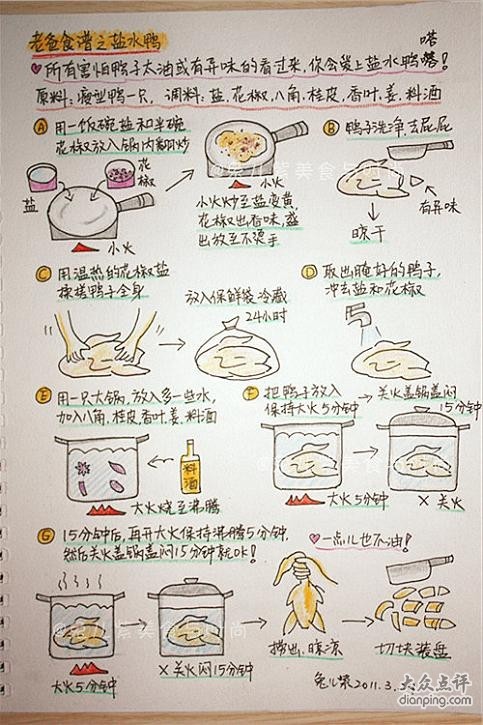 老爸食谱之盐水鸭
嗒
所有害怕鸭子太油或有异味的看过来,你会爱上盐水鸭嗒!
原料:瘦型鸭一只, 调料:盐、花椒、八角、桂皮、香叶、姜、料酒
A 用一饭碗盐和半碗
花椒放入锅内翻炒
盐
花椒
小火
小火
小火炒至盐变黄,
花椒出香味,盛
出放至不烫手
B 鸭子洗净、去屁屁
有异味
晾干
C 用温热的花椒盐
揉搓鸭子全身
放入保鲜袋冷藏
24小时
D 取出腌好的鸭子,
冲去盐和花椒
E 用一只大锅,放入多一些水,
加入八角、桂皮、香叶、姜、料酒
料酒
大火烧至沸腾
F 把鸭子放入
保持大火5分钟
关火盖锅盖闷
15分钟
大火5分钟
×关火
G 15分钟后,再开大火保持沸腾5分钟,
然后关火盖锅盖闷15分钟就OK!
一点儿也不油!
大火5分钟
×关火闷15分钟
捞出、晾凉
切块装盘
兔儿紫 2011.3.
大众点评
dianping.com